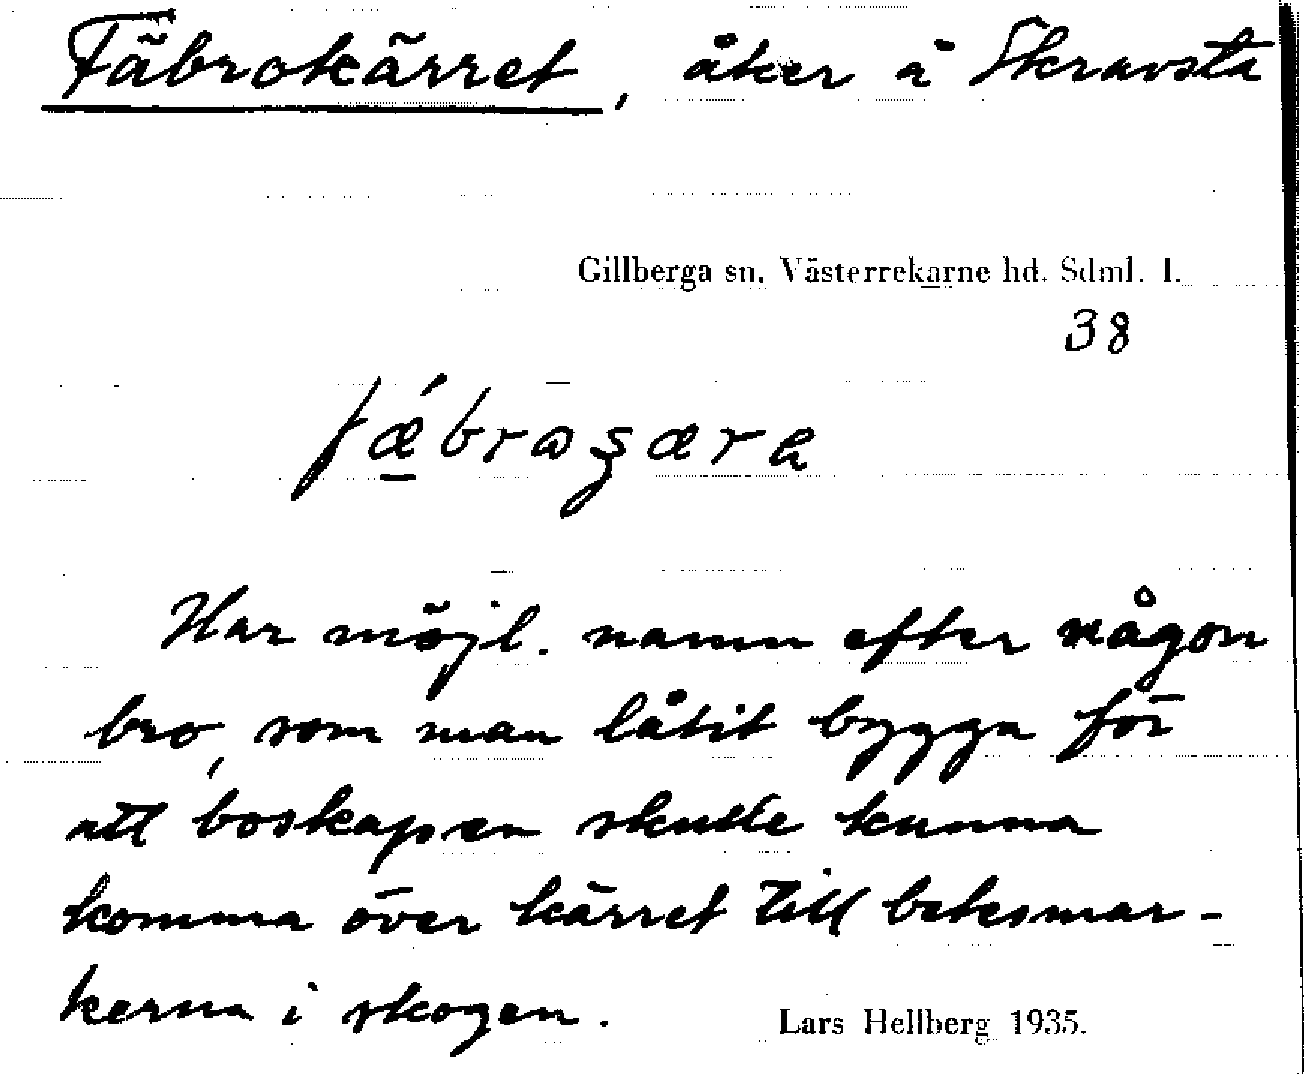 Fäbrokärret, åker å Skravsta
Gillberga sn. Västerrekarne hd. Sdml. l.
38
fǽbroʂæra
Har möjl. namn efter någon
bro, som man låtit bygga för
att boskapen skulle kunna
komma över kärret till betesmar-
kerna i skogen.
Lars Hellberg 1935.